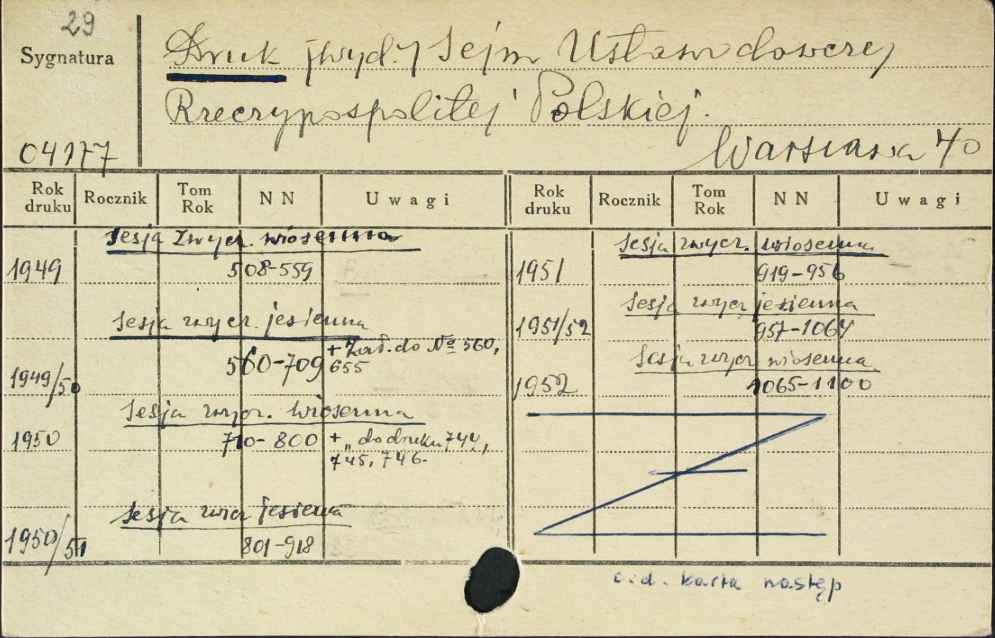 29
Sygnatura
Druk [wyd.] Sejm Ustawodawczej
Rzeczypospolitej Polskiej.
04177
Warszawa 40
Rok druku Rocznik Tom Rok NN Uwagi
Sesja zwycz. wiosenna
1949 508-559
Sesja zwycz. jesienna
1949/50 560-709 + Zał. do № 560, 655
Sesja zwycz. wiosenna
1950 710-800 + „ do druku 744, 745, 746.
Sesja zwycz jesienna
1950/51 801-918
Rok druku Rocznik Tom Rok NN Uwagi
Sesja zwycz. wiosenna
1951 919-956
Sesja zwycz jesienna
1951/52 957-1064
Sesja zwycz wiosenna
1952 1065-1100
c.d. karta następ